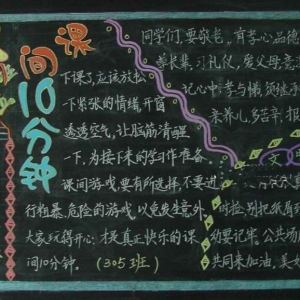 课间10分钟
下课了,应该放松一
下紧张的情绪,开窗
透透空气,让脑筋清醒
一下,为接下来的学习作准备。
课间游戏要有所选择,不要进
行粗暴、危险的游戏,以免发生意外,
大家玩得开心,才是真正快乐的课
间10分钟。(305班)
同学们,要敬老,有孝心品德
尊长辈,习礼仪,爱父母意
记心中孝与
亲养儿,多苦辛,报
文
时捡,别把纸屑
幼要记牢,公共场所
共同来加油,美好